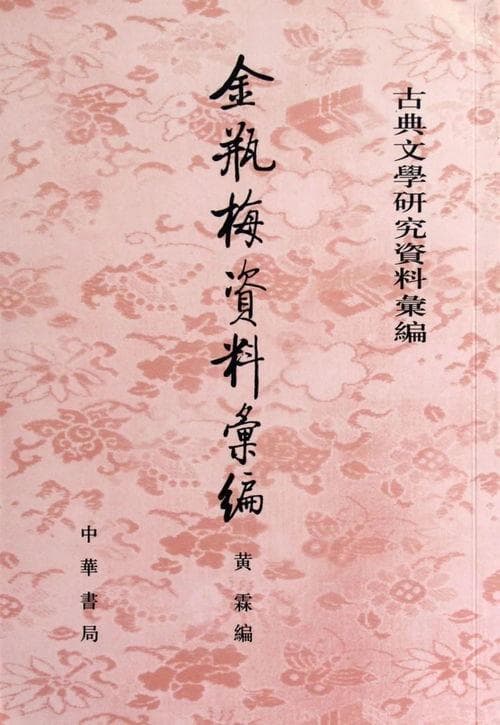 古典文學研究資料彙編
金瓶梅資料彙編
黄霖編
中華書局